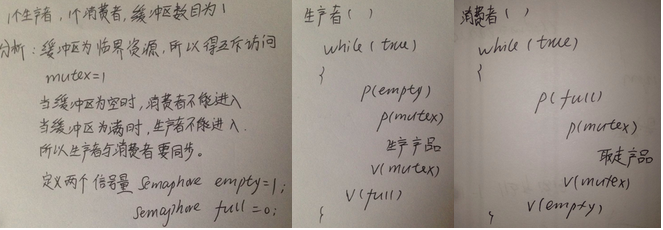 1个生产者,1个消费者,缓冲区数目为1
分析:缓冲区为临界资源,所以得互斥访问
mutex=1
当缓冲区为空时,消费者不能进入
当缓冲区为满时,生产者不能进入.
所以生产者与消费者要同步。
定义两个信号量 Semaphore empty=1;
Semaphore full=0;
生产者( )
while(true)
{
p(empty)
p(mutex)
生产产品
v(mutex)
V(full)
}
消费者( )
while(true)
{
p(full)
p(mutex)
取走产品
v(mutex)
v(empty)
}